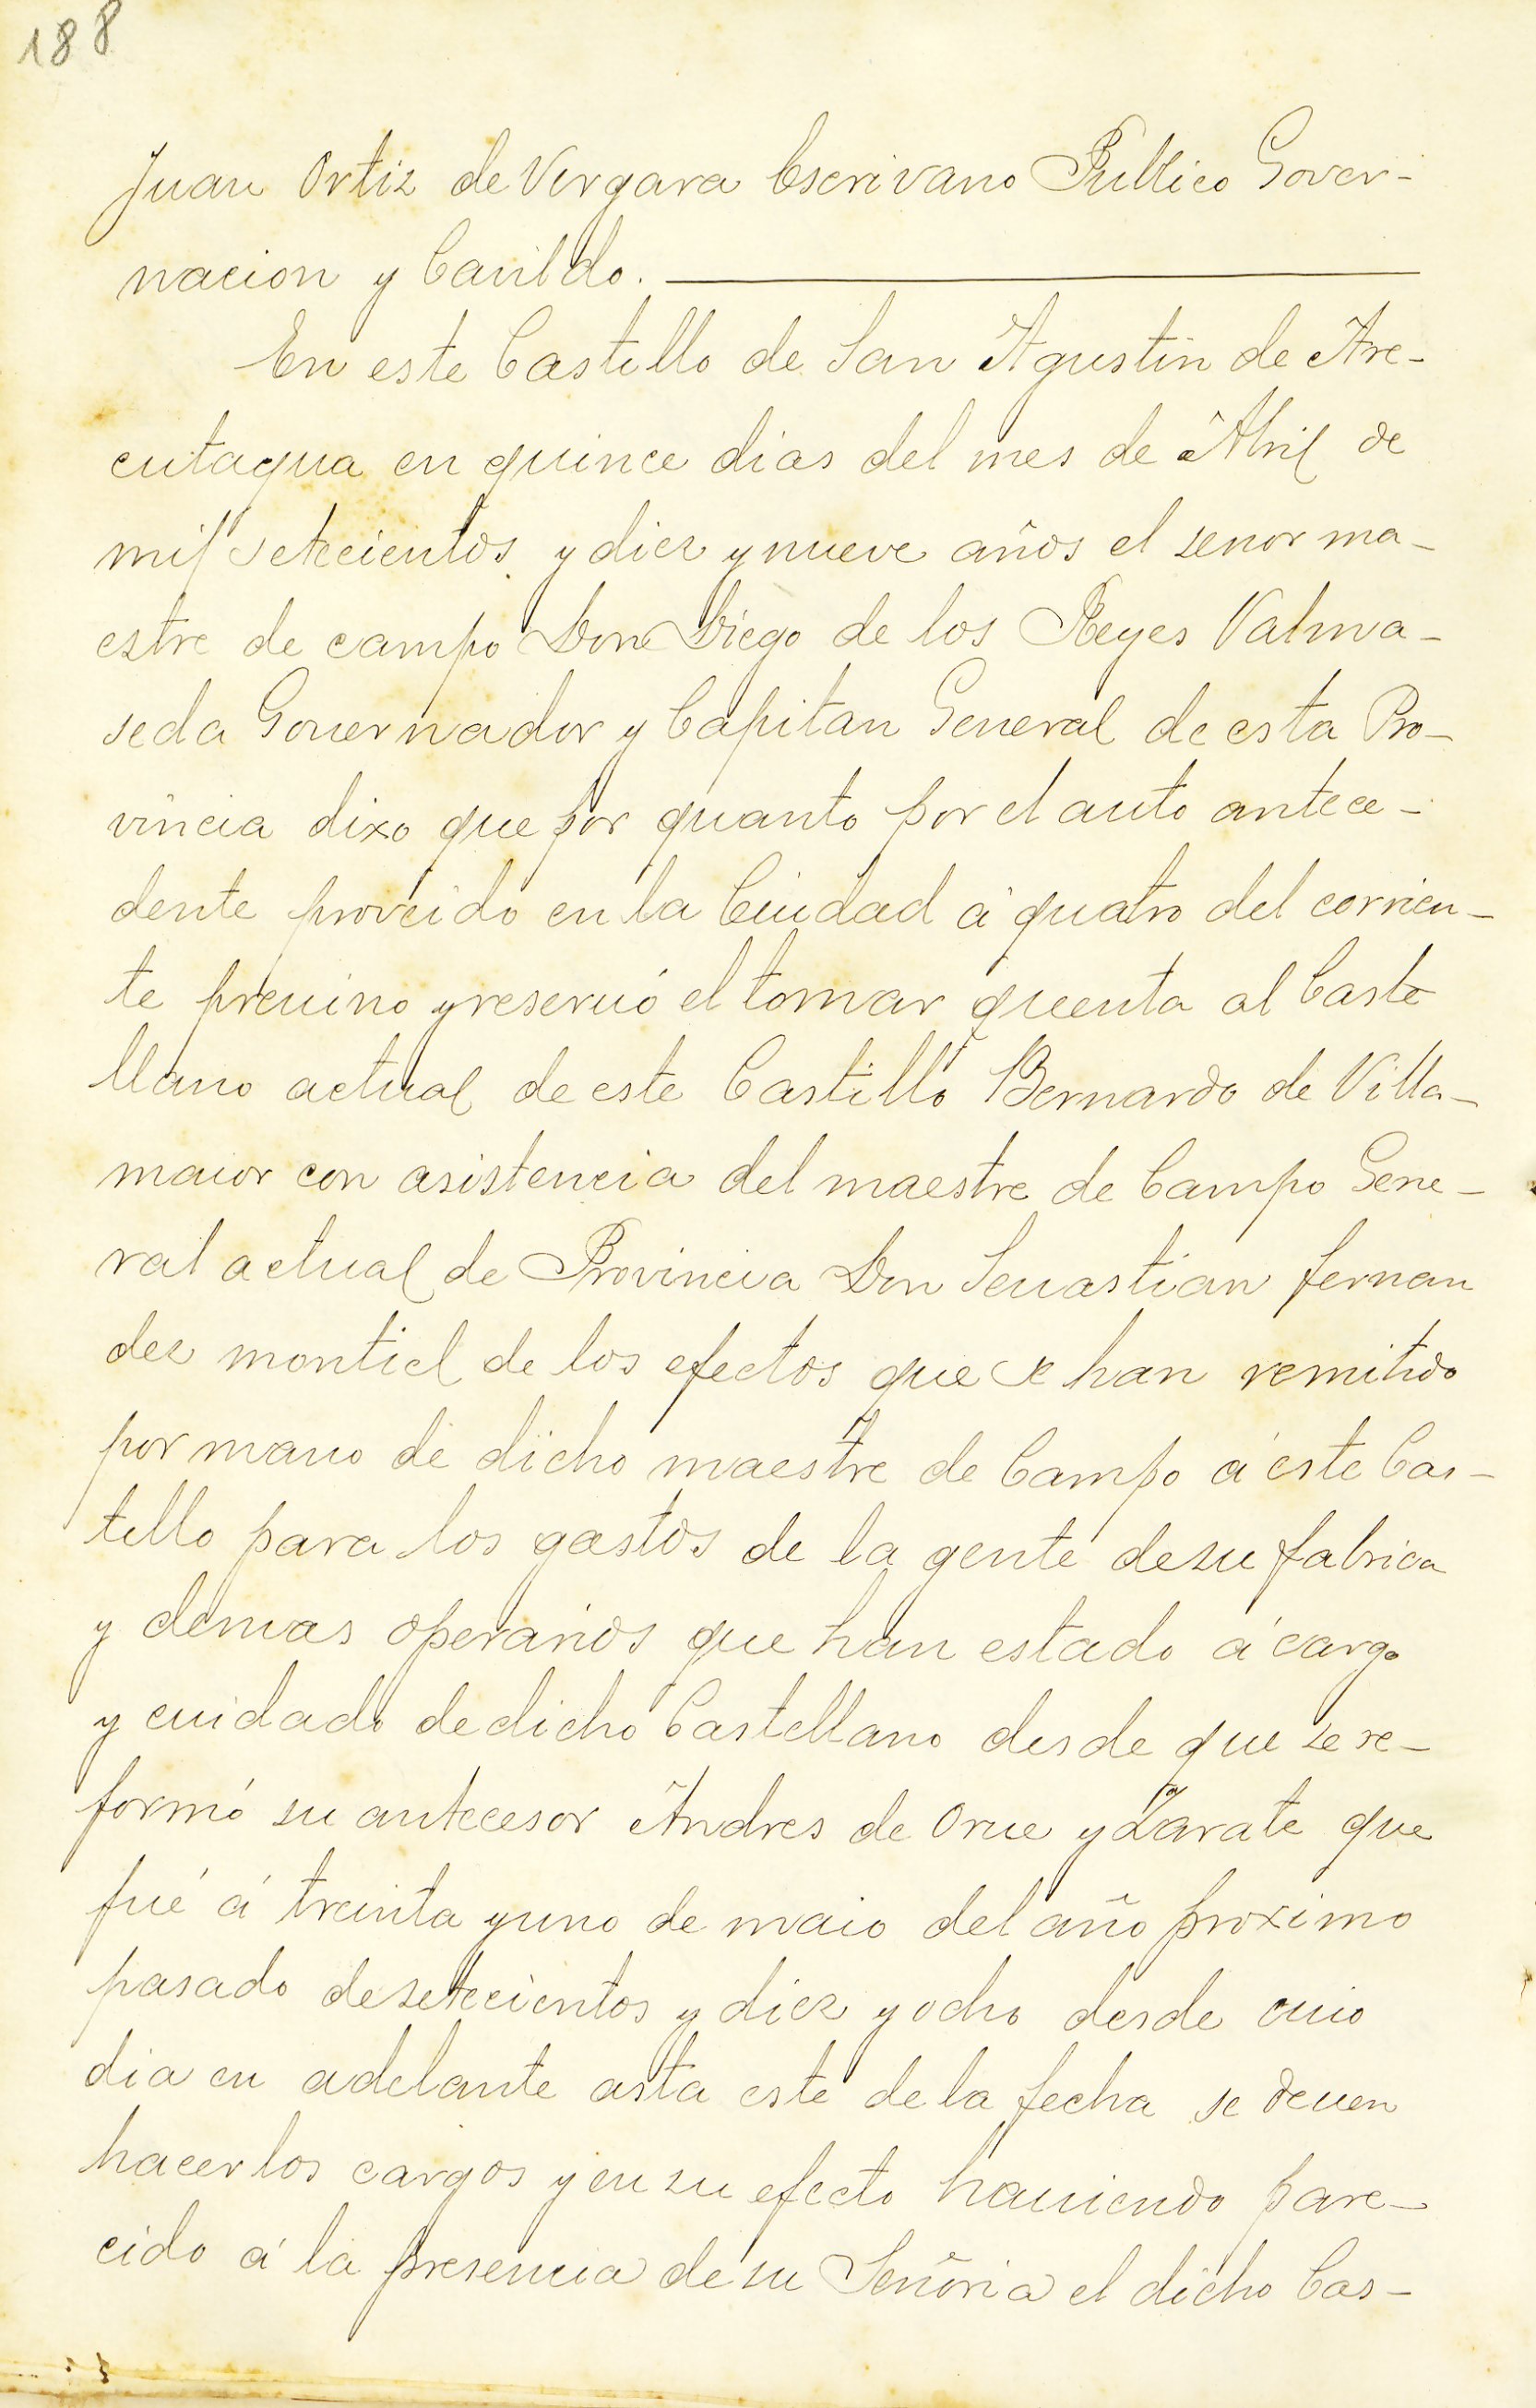 188
Juan Ortiz de Vergara Escrivano Publico Gover-
nacion y Cavildo.
En este Castillo de San Agustin de Are-
cutagua en quince dias del mes de Abril de
mil setecientos y diez y nueve años el senor ma-
estre de campo Don Diego de los Reyes Valma-
seda Gouernador y Capitan General de esta Pro-
vincia dixo que por quanto por el auto antece-
dente proveido en la Ciudad á quatro del corrien-
te preuino y reseruó el tomar quenta al Caste
llano actual de este Castillo Bernardo de Villa-
maior con asistencia del maestre de Campo Gene-
ral actual de Provincia Don Seuastian fernan
dez montiel de los efectos que se han remitido
por mano de dicho maestre de Campo á este Cas-
tillo para los gastos de la gente de su fabrica
y demas operarios que han estado á cargo
y cuidado de dicho Castellano desde que se re-
formó su antecesor Andres de Orue y Zarate que
fué á treinta y uno de maio del año proximo
pasado de setecientos y diez y ocho desde cuio
dia en adelante asta este de la fecha se deuen
hacer los cargos y en su efecto hauiendo pare-
cido á la presencia de su Señoria el dicho Cas-